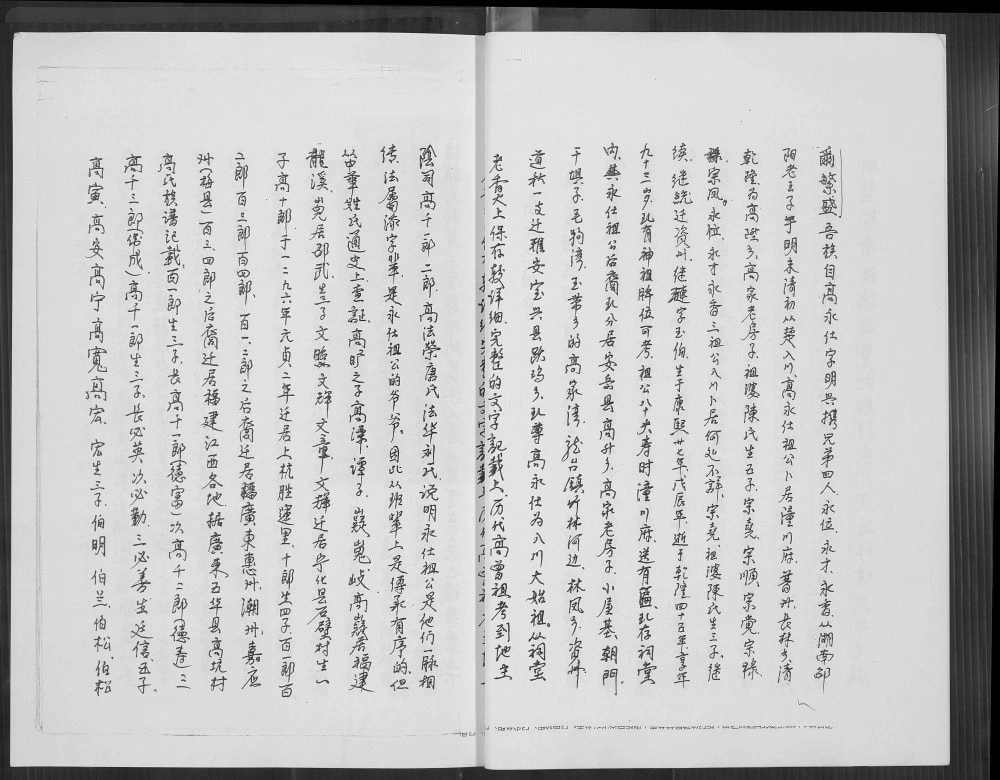 爾繁盛，吾族自高永仕字明兴携兄弟四人，永位、永才、永香从湖南邵
阳老主子于明末清初从楚入川，高永仕祖公卜居潼川府，普州长林乡，清
乾隆为高陞乡，高家老房子。祖婆陈氏生五子，宗尧、宗顺、宗党、宗禄、
宗凤。永位、永才、永香三祖公入川卜居何处不詳，宗尧祖婆陈氏生三子，继
续、继统迁资州，继琏字玉伯，生于康熙廿七年戊辰年，逝于乾隆四十五年，享年
九十三岁，現有神祖牌位可考，祖公八十大寿时，潼川府送有匾，現存祠堂
内，兴永仕祖公后裔現分居安岳县高升乡，高家老房子，小屋基，朝門，
干坝子，毛狗湾，玉带乡的高家湾，龙台镇竹林河边，林凤乡，资州
道秋一支迁雅安宝兴县跷碛乡，現尊高永仕为入川大始祖。从祠堂
老香火上保存较详细完整的文字記載上，历代高曾祖考到地主
陰司高千一郎、二郎，高法荣唐氏，法华刘氏，说明永仕祖公是他们一脉相
传，法属添字輩，是永仕祖公的爷爷，因此从班辈上是傳承有序的，但
笛章姓氏通史上查証高旷之子高潭，潭子嶷、嵬、岐，高嶷居福建
龍溪，嵬居邵武，生三子文照、文輝、文章，文輝迁居寧化县石壁村，生一
子高十郎，于一二九六年元贞二年迁居上杭胜運里，十郎生四子，百一郎、百
二郎、百三郎、百四郎，百一、二郎之后裔迁居广東惠州、潮州、嘉应
州（梅县）百三、四郎之后裔迁居福建江西各地，据廣東五华县高坑村
高氏族谱記載：百一郎生三子，长高千一郎（德富）次高千二郎（德春）三
高千三郎（德成）高千一郎生三子，长必英，次必勤，三必善生廷信，五子，
高寅、高安、高宁、高寬、高宏，宏生三子，伯明、伯兰、伯松，伯松